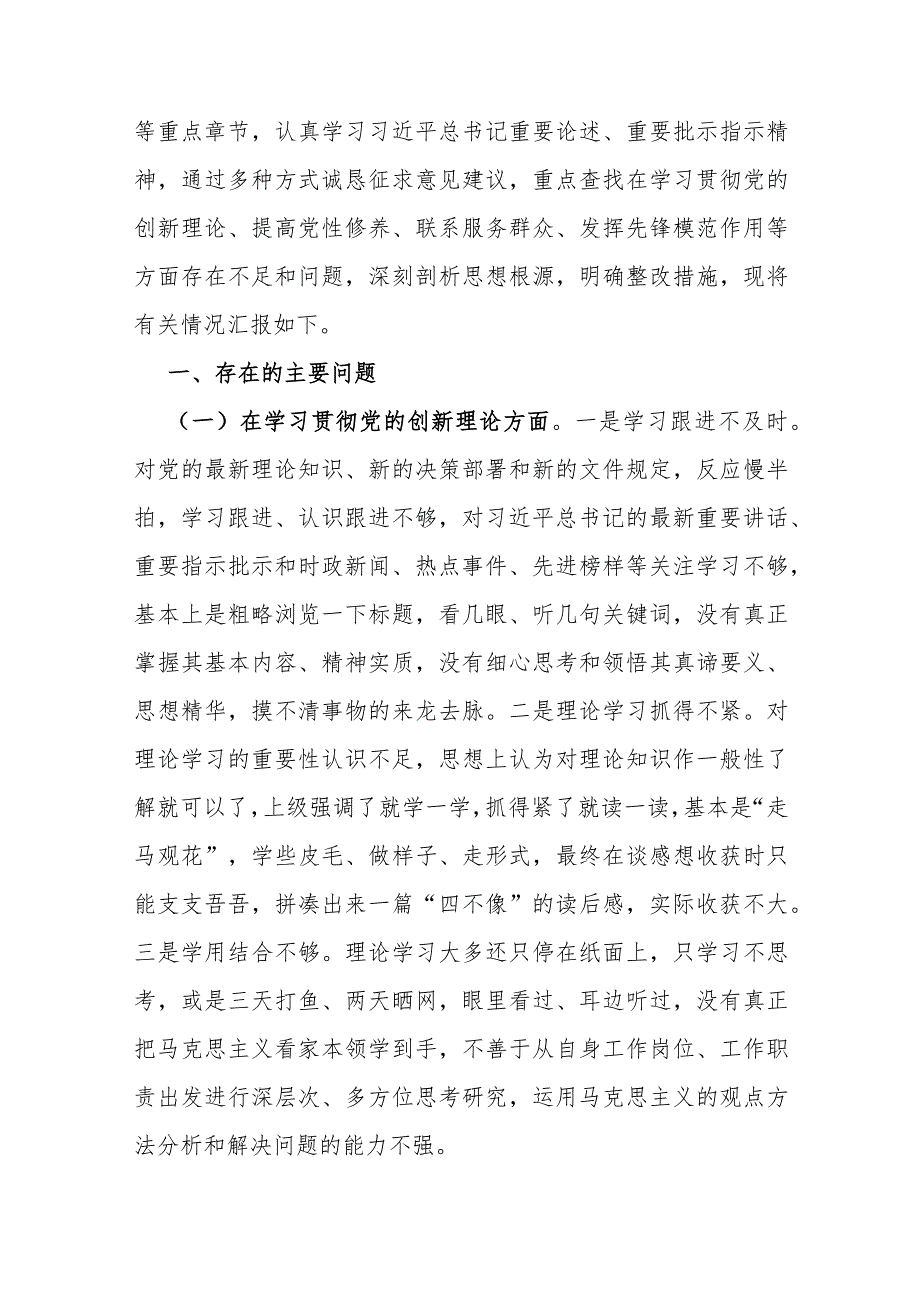 等重点章节，认真学习习近平总书记重要论述、重要批示指示精
神，通过多种方式诚恳征求意见建议，重点查找在学习贯彻党的
创新理论、提高党性修养、联系服务群众、发挥先锋模范作用等
方面存在不足和问题，深刻剖析思想根源，明确整改措施，现将
有关情况汇报如下。
一、存在的主要问题
（一）在学习贯彻党的创新理论方面。一是学习跟进不及时。
对党的最新理论知识、新的决策部署和新的文件规定，反应慢半
拍，学习跟进、认识跟进不够，对习近平总书记的最新重要讲话、
重要指示批示和时政新闻、热点事件、先进榜样等关注学习不够，
基本上是粗略浏览一下标题，看几眼、听几句关键词，没有真正
掌握其基本内容、精神实质，没有细心思考和领悟其真谛要义、
思想精华，摸不清事物的来龙去脉。二是理论学习抓得不紧。对
理论学习的重要性认识不足，思想上认为对理论知识作一般性了
解就可以了，上级强调了就学一学，抓得紧了就读一读，基本是“走
马观花”，学些皮毛、做样子、走形式，最终在谈感想收获时只
能支支吾吾，拼凑出来一篇“四不像”的读后感，实际收获不大。
三是学用结合不够。理论学习大多还只停在纸面上，只学习不思
考，或是三天打鱼、两天晒网，眼里看过、耳边听过，没有真正
把马克思主义看家本领学到手，不善于从自身工作岗位、工作职
责出发进行深层次、多方位思考研究，运用马克思主义的观点方
法分析和解决问题的能力不强。